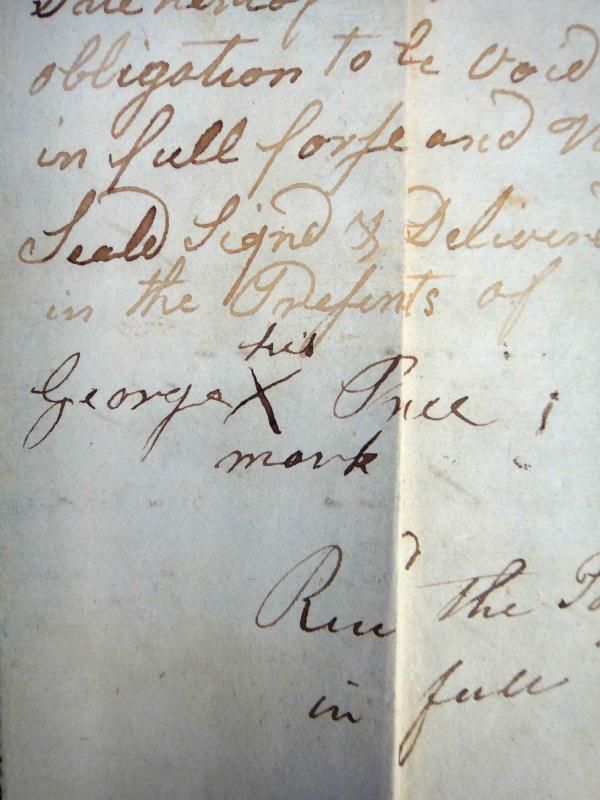 obligation to be void
in full forse and
Seald Signd & Deliverd
in the Presents of
his
George X Price
mark
Recd the
in full